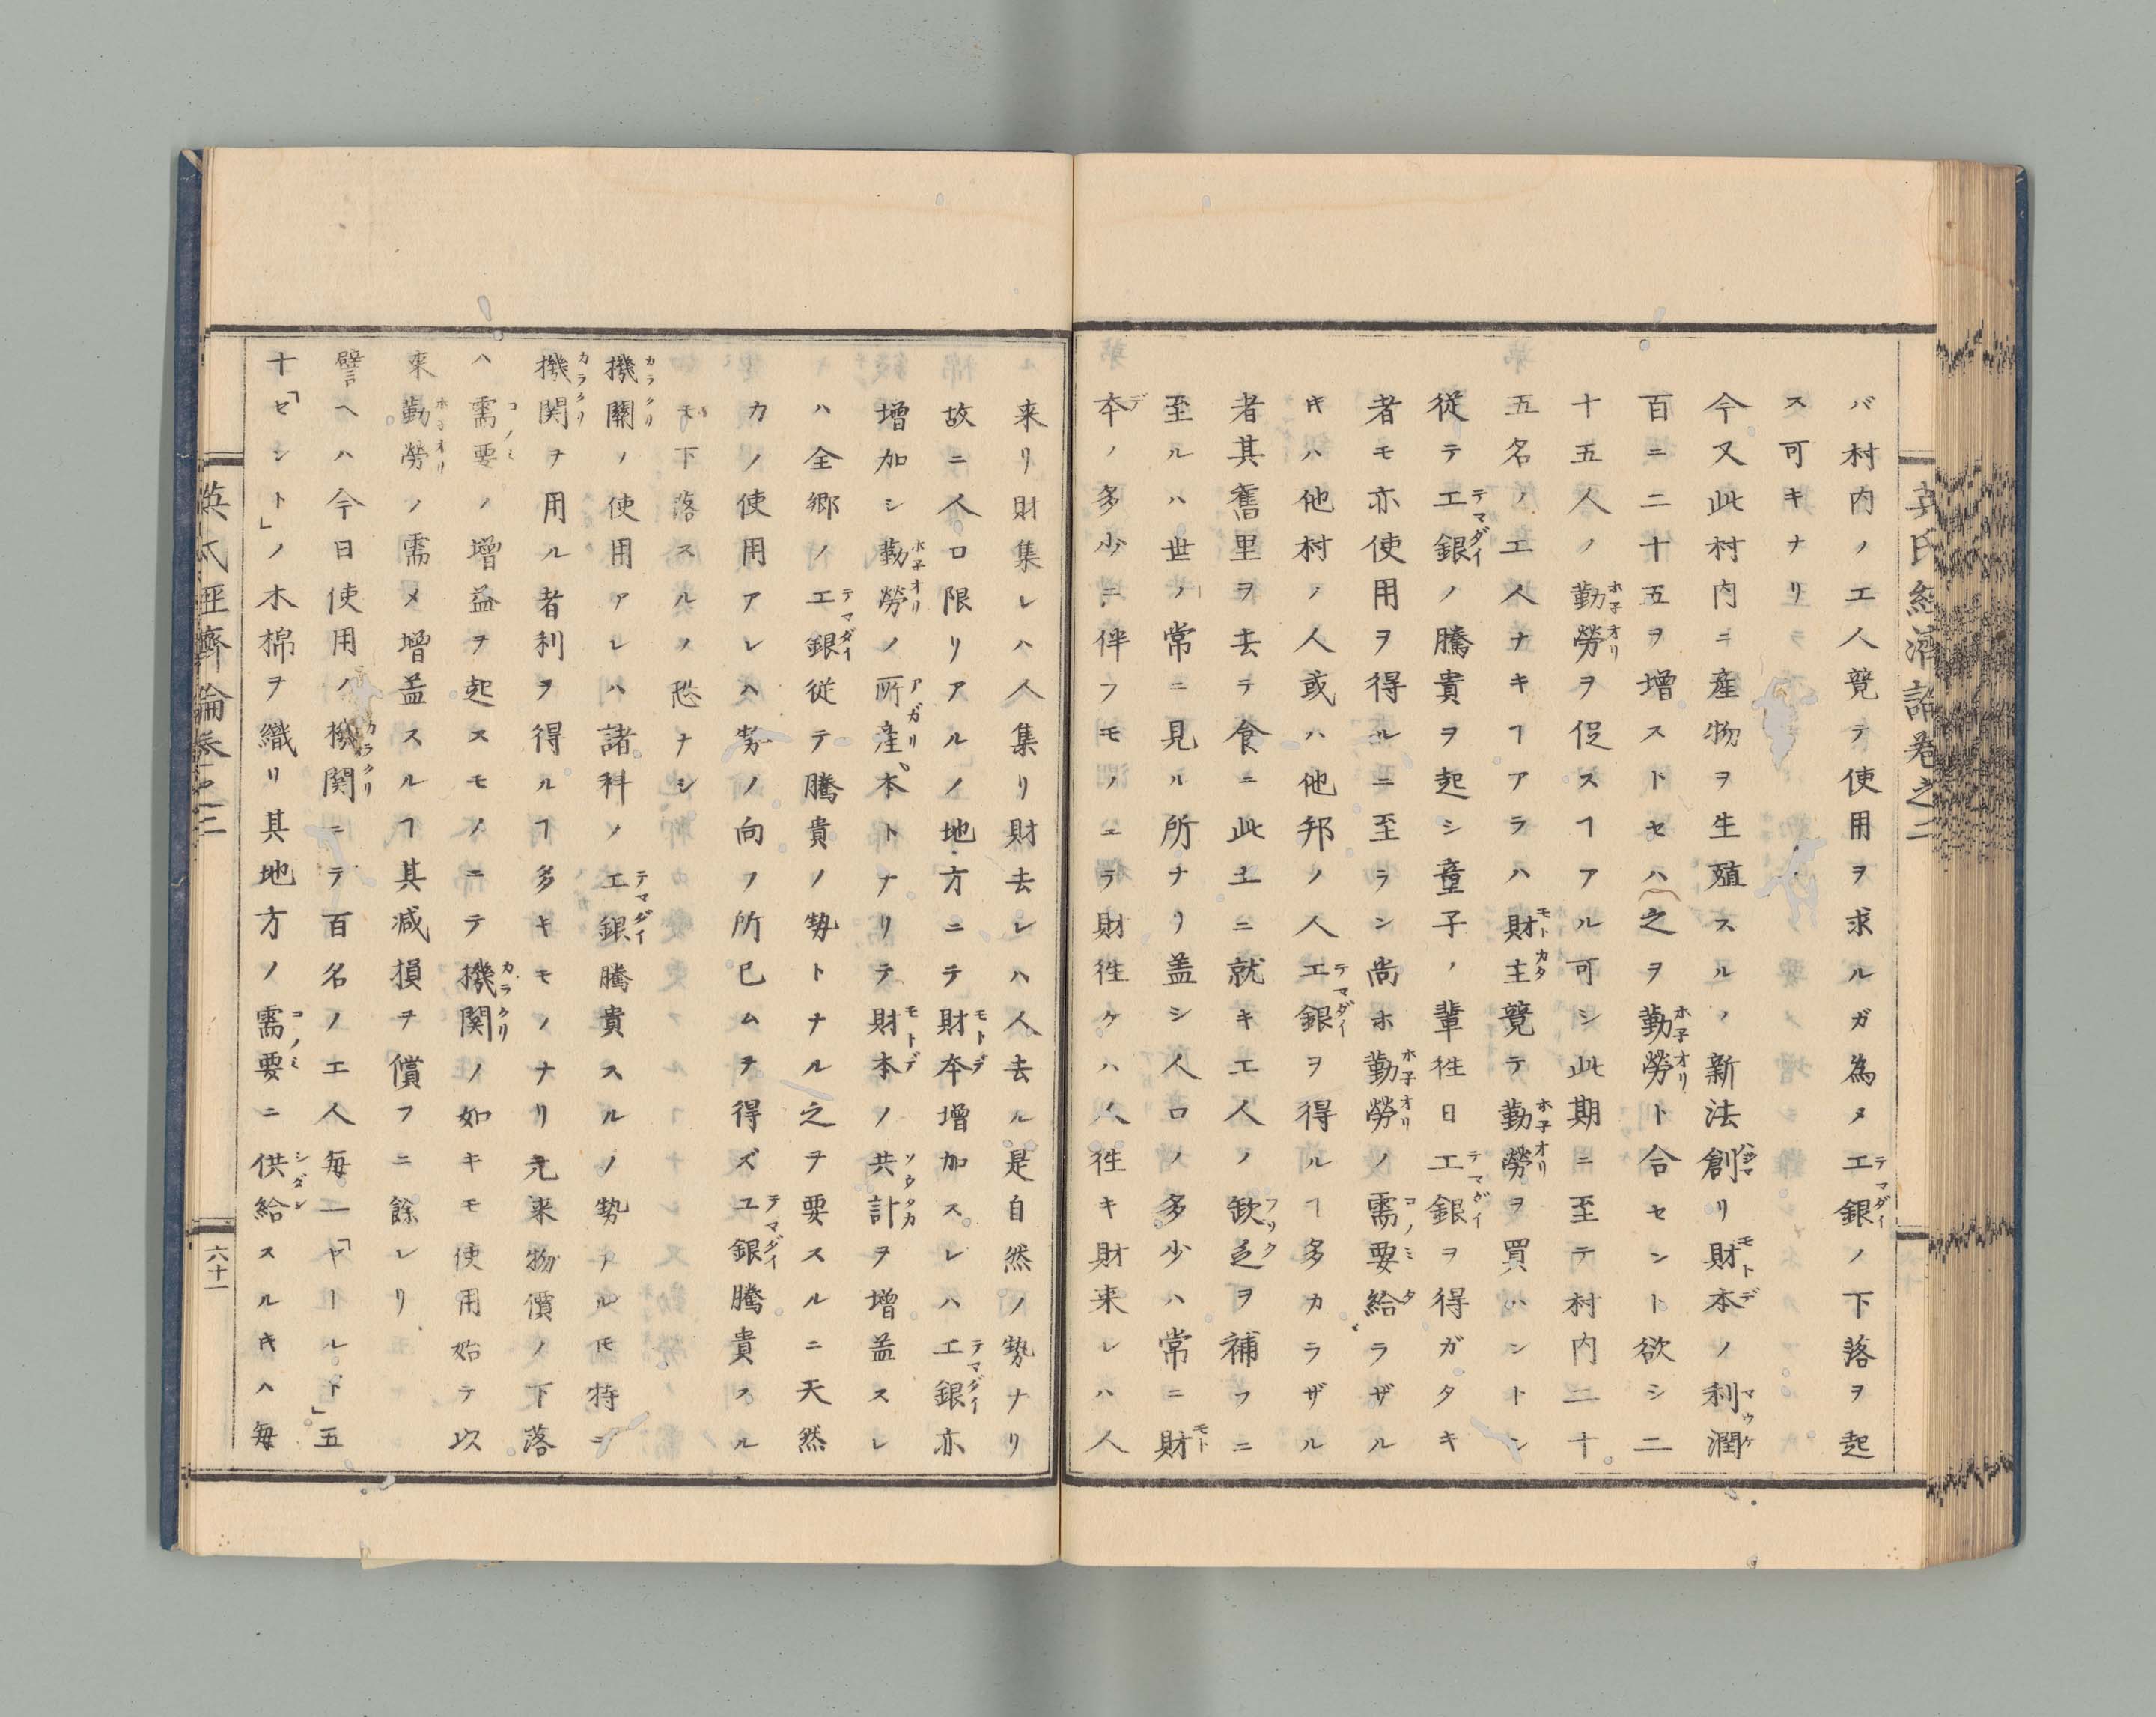 英氏経済論巻之二
バ村内ノ工人競テ使用ヲ求ルガ為メ工銀ノ下落ヲ起
ス可キナリ
今又此村内ニ産物ヲ生殖スルノ新法創リ財本ノ利潤
百ニ二十五ヲ増ストセハ之ヲ勤勞ト合セント欲シ二
十五人ノ勤勞ヲ促スヿアル可シ此期ニ至テ村内二十
五名ノ工人ナキヿアラハ財主競テ勤勞ヲ買ハントシ
従テ工銀ノ騰貴ヲ起シ童子ノ輩徃日工銀ヲ得ガタキ
者モ亦使用ヲ得ルニ至ラン尚ホ勤勞ノ需要給ラザル
キハ他村ノ人或ハ他邦ノ人工銀ヲ得ルヿ多カラザル
者其舊里ヲ去テ食ニ此土ニ就キ工人ノ欽乏ヲ補フニ
至ルハ世ノ常ニ見ル所ナリ盖シ人口ノ多少ハ常ニ財
夲ノ多少ニ伴フモノニテ財徃ケハ人徃キ財来レハ人
来リ財集レハ人集リ財去レハ人去ル是自然ノ勢ナリ
故ニ人口限リアルノ地方ニテ財夲増加スレハ工銀亦
増加シ勤勞ノ所産本トナリテ財本ノ共計ヲ増益スレ
ハ全郷ノ工銀従テ騰貴ノ勢トナル之ヲ要スルニ天然
カノ使用アレハ勢ノ向フ所已ムヲ得ズ工銀騰貴スル
モ下落スルノ恐ナシ
機關ノ使用アレハ諸科ノ工銀騰貴スルノ勢アルモ特ニ
機関ヲ用ル者利ヲ得ルヿ多キモノナリ元来物價ノ下落
ハ需要ノ増益ヲ起スモノニテ機関ノ如キモ使用始テ以
来勤勞ノ需メ増益スルヿ其減損ヲ償フニ餘レリ
譬ヘハ今日使用ノ機関ニテ百名ノ工人毎一「ヤールト」五
十「セシト」ノ木棉ヲ織リ其地方ノ需要ニ供給スルキハ毎
英氏経濟論巻之二
六十一